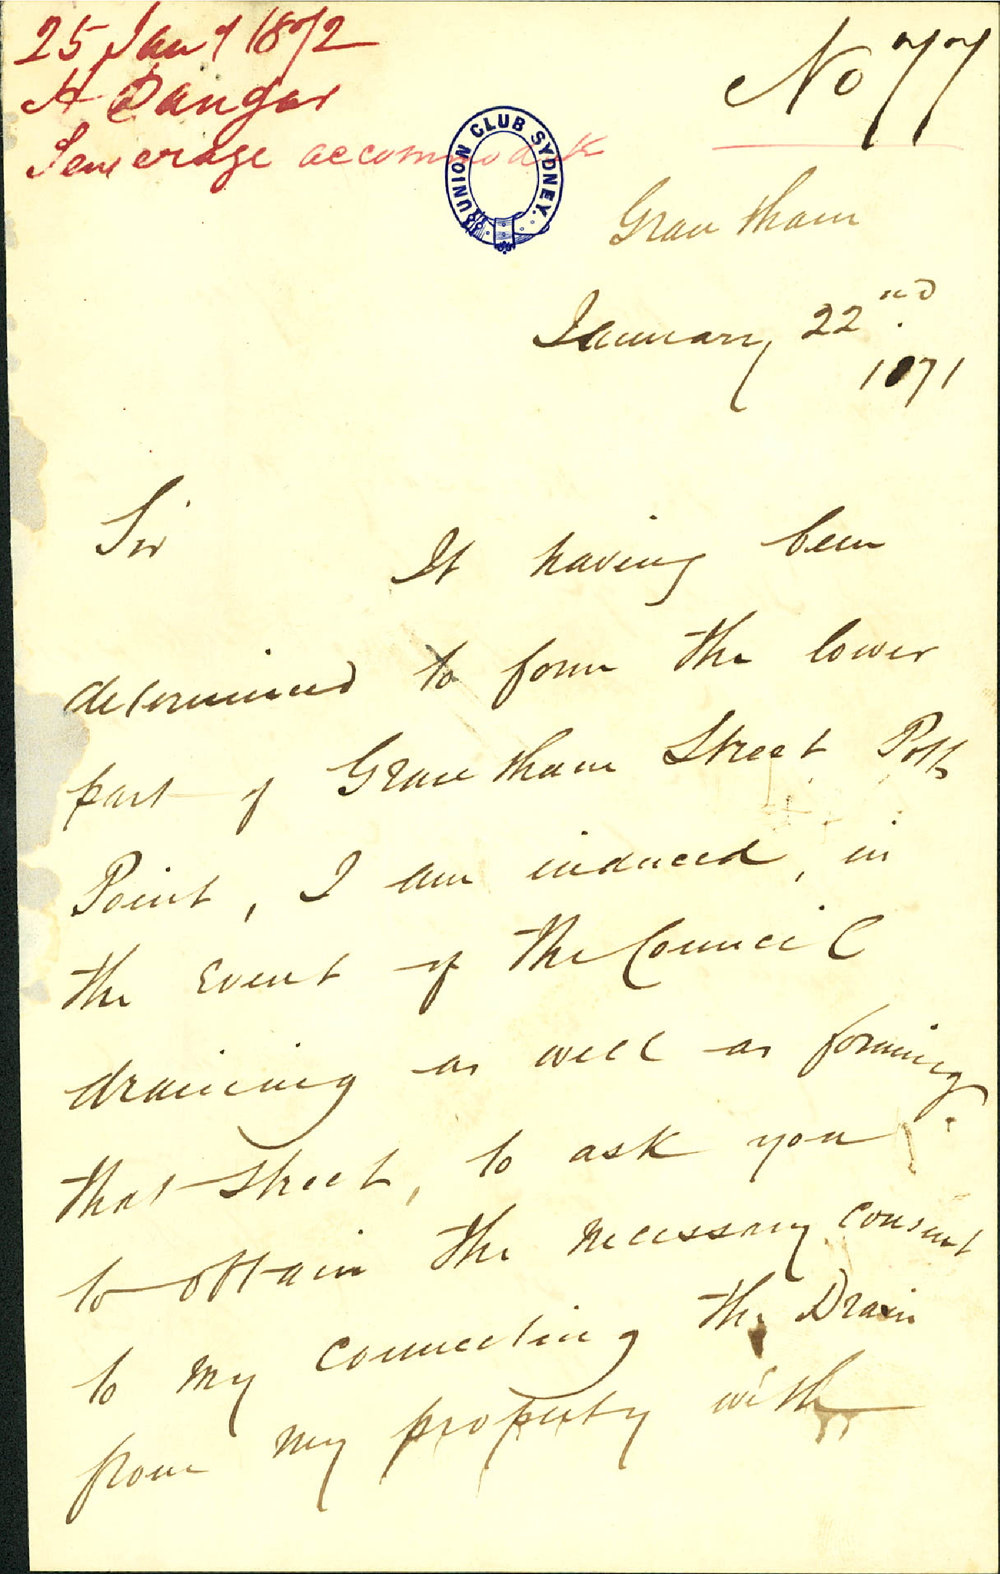 25 Jany 1872
H Dangar
Sewerage accommodatn
No 77
UNION CLUB SYDNEY.
Grantham
January 22nd
1871
Sir
It having been
determined to form the lower
part of Grantham Street Potts
Point, I am induced, in
the Event of the Council
draining as well as forming
that Street, to ask you
to obtain the necessary consent
to my connecting the Drain
from my property with